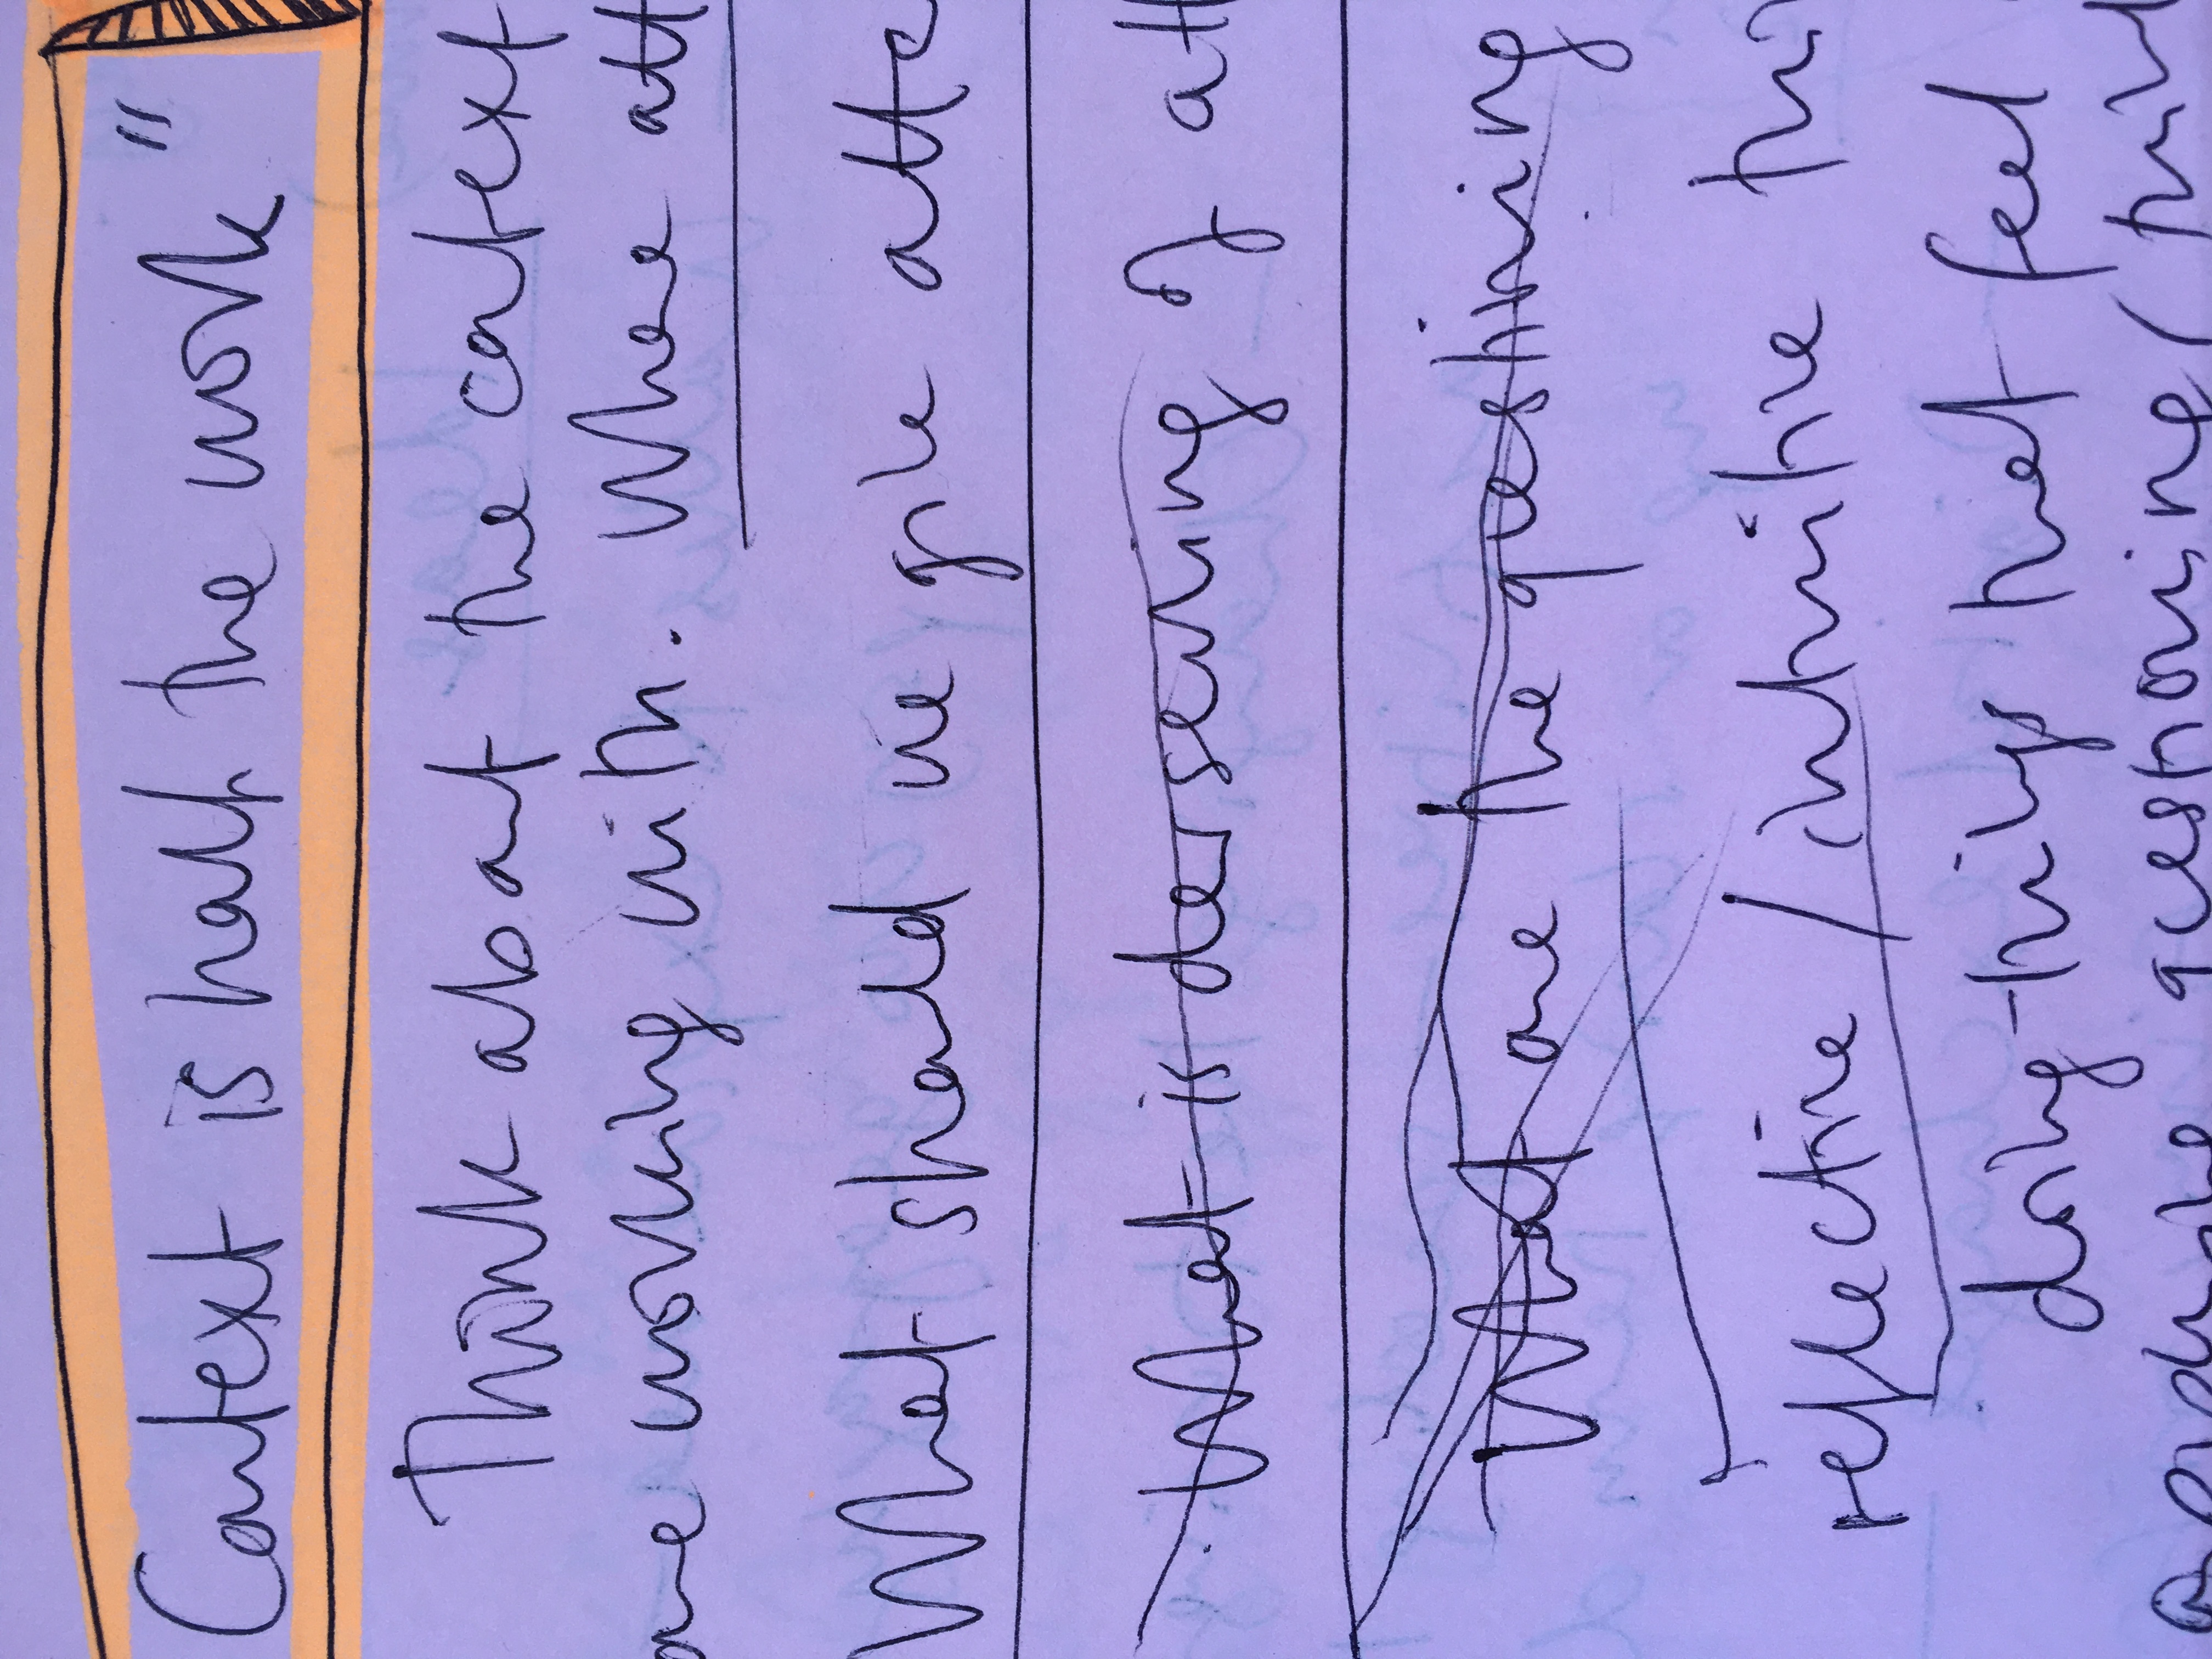 Context is half the work"
Think about the context
are working with. Where att
What should we give atte
What is deserving of att
What are the questioning
reflective / intuitive
doing-thinly that feel
questioning (